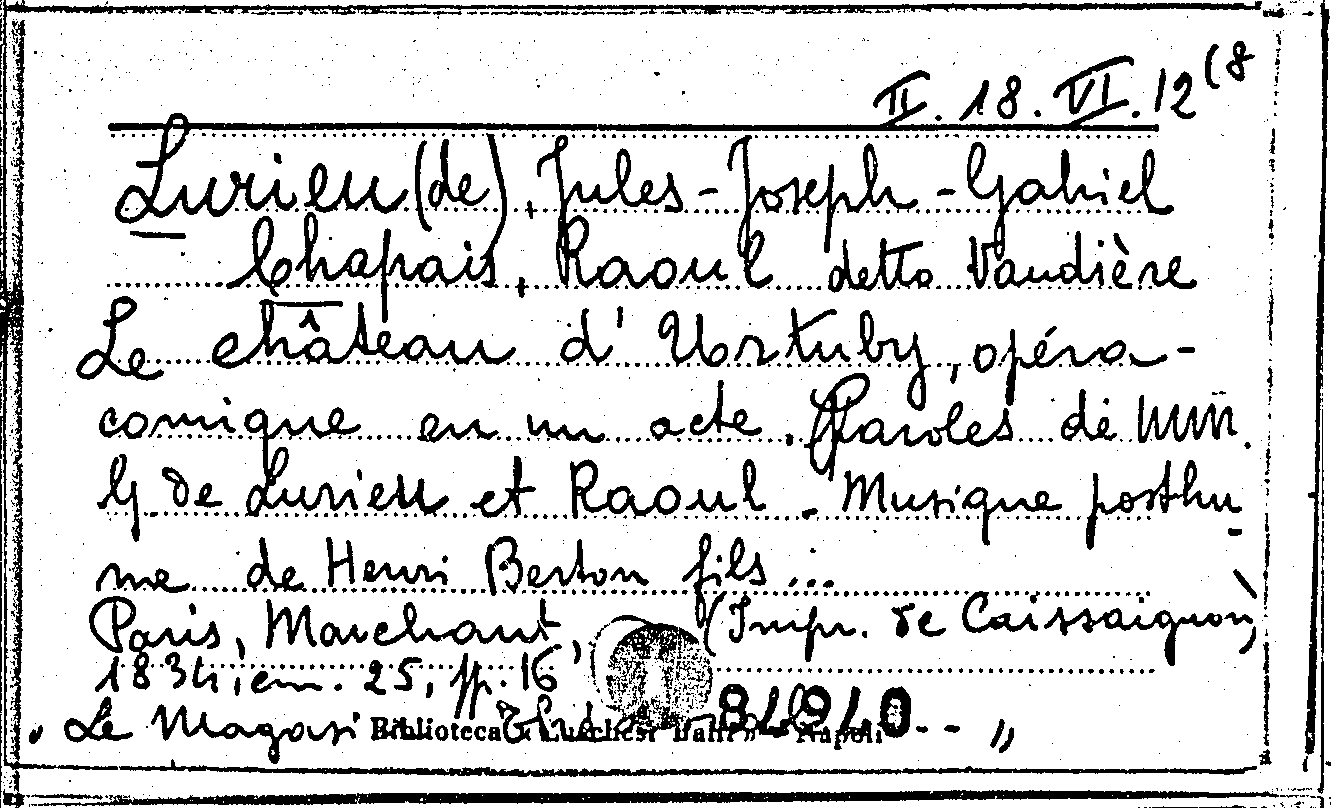 II. 18. VI. 12 (8
Lurieu (de), Jules-Joseph-Gabriel
Chapais, Raoul detto Vaudière
Le château d'Urtuby, opéra-
comique en un acte. Paroles de MM.
G de Lurieu et Raoul. Musique posthu-
me de Henri Berton fils...
Paris, Marchant, (Impr. de Caissaignon)
1834, cm. 25, pp. 16
"Le Magasi -- "
Biblioteca « Lucchesi Palli » - Napoli
81910